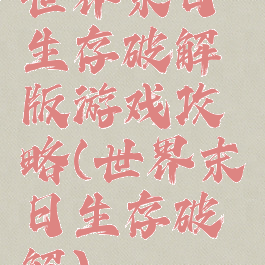 世界末日
生存破解
版游戏攻
略(世界末
日生存破
解)